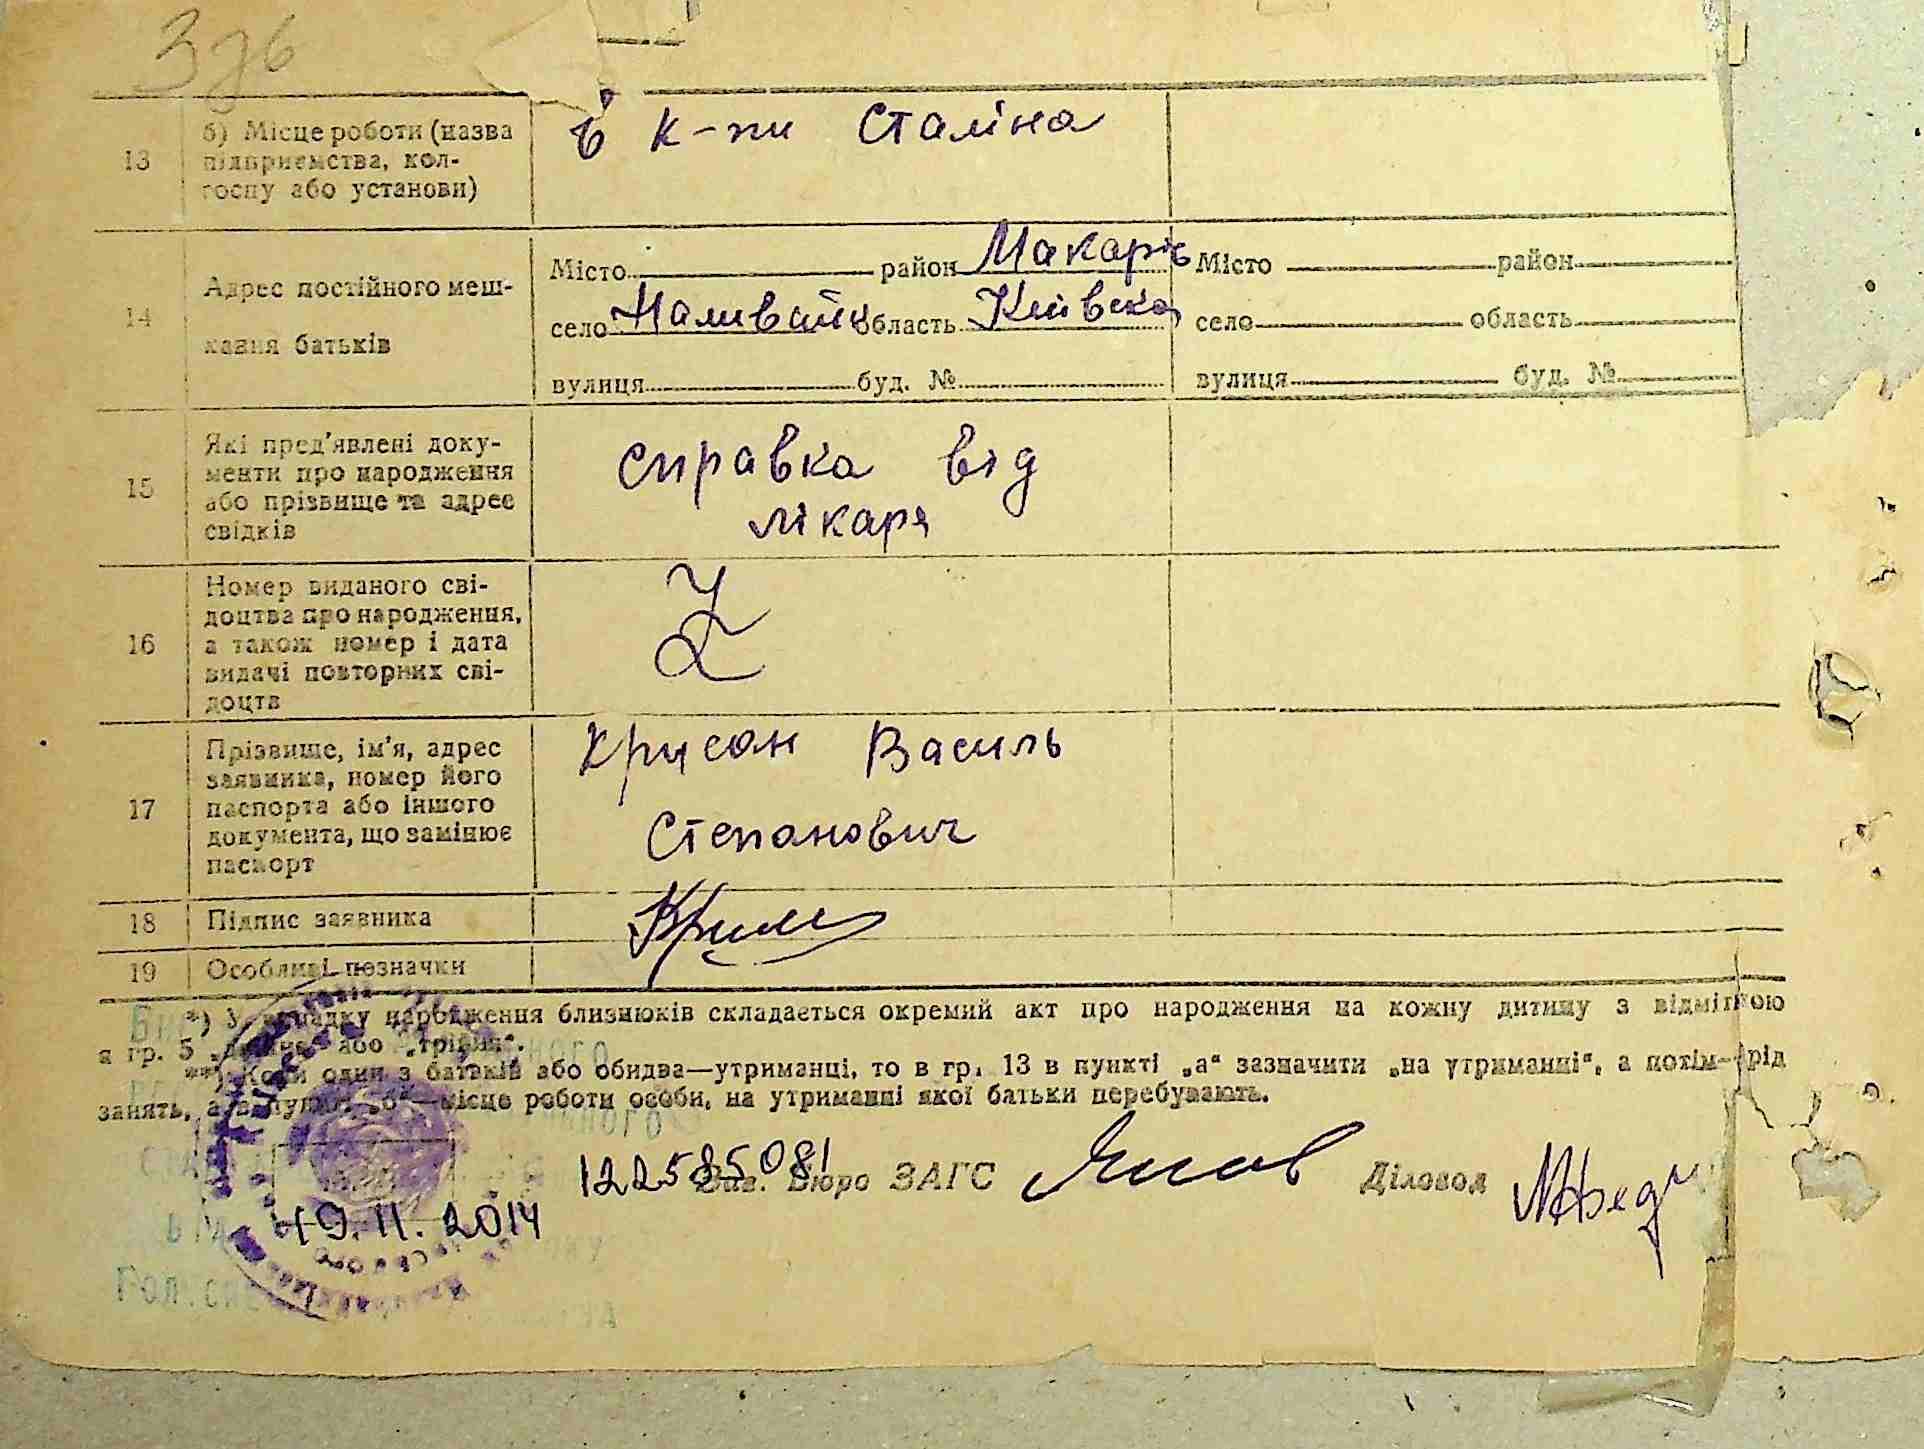 13 б) Місце роботи (назва підприємства, колгоспу або установи) в к-пи Сталіна
14 Адрес постійного мешкання батьків
Місто район Макарів Місто район
село Наливайк область Київська село область
вулиця буд. № вулиця буд. №
15 Які пред'явлені документи про народження або прізвище та адрес свідків справка від
лікаря
16 Номер виданого свідоцтва про народження, а також номер і дата видачі повторних свідоцтв
17 Прізвище, ім'я, адрес заявника, номер його паспорта або іншого документа, що замінює паспорт Крисан Василь
Степанович
18 Підпис заявника
19 Особливі позначки
*) У випадку народження близнюків складається окремий акт про народження на кожну дитину з відміткою
в гр. 5 „двійня“ або „трійня“.
**) Коли один з батьків або обидва—утриманці, то в гр. 13 в пункті „а“ зазначити „на утриманні“, а потім—рід
занять, а в пункті „б“—місце роботи особи, на утриманні якої батьки перебувають.
Зав. Бюро ЗАГС Діловод
19.11.2014